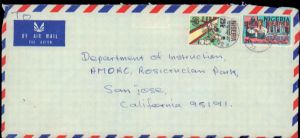 BY AIR MAIL
PAR AVION
NIGERIA
Department of Instruction,
AMORC, Rosicrucian Park,
San jose,
California 95191.